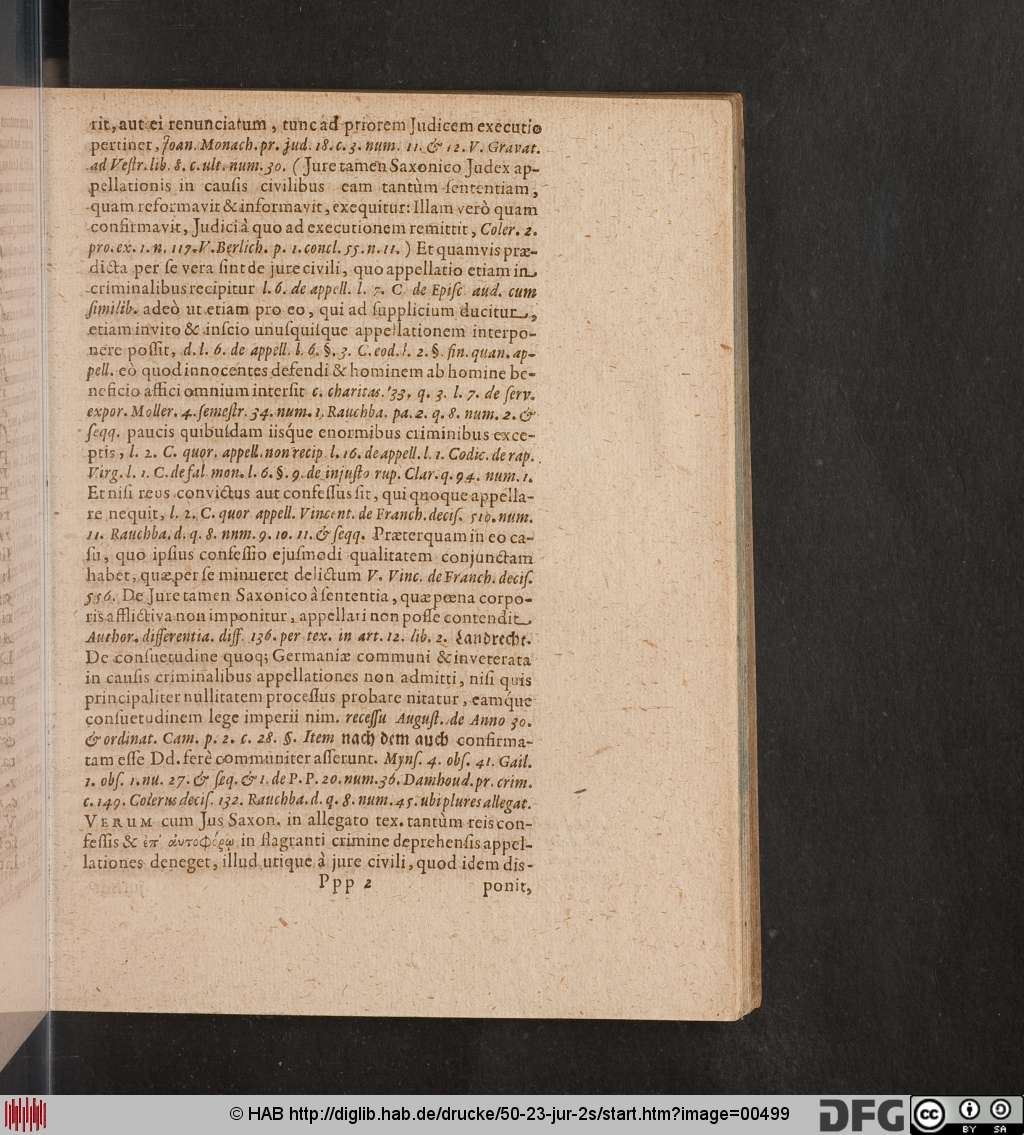 rit, aut ei renunciatum, tunc ad priorem Judicem executio
pertinet, Joan. Monach. pr. jud. 18. c. 3. num. 11. & 12. V. Gravat.
ad Veſtr. lib. 8. c. ult. num. 30. (Jure tamen Saxonico Judex ap-
pellationis in cauſis civilibus eam tantùm ſententiam,
quam reformavit & informavit, exequitur: Illam verò quam
confirmavit, Judici à quo ad executionem remittit, Coler. 2.
pro. ex. 1. n. 117. V. Berlich. p. 1. concl. 55. n. 11.) Et quamvis præ-
dicta per ſe vera ſint de jure civili, quo appellatio etiam in
criminalibus recipitur l. 6. de appell. l. 7. C de Epiſc aud. cum
ſimilib. adeò ut etiam pro eo, qui ad ſupplicium ducitur,
etiam invito & inſcio unuſquiſque appellationem interpo-
nere poſſit, d. l. 6. de appell. l. 6. §. 3. C. eod. l. 2. §. fin. quan. ap-
pell. eò quod innocentes defendi & hominem ab homine be-
neficio affici omnium interſit c. charitas. 33. q. 3. l. 7. de ſerv.
expor. Moller. 4. ſemeſtr. 34. num. 1. Rauchba. pa. 2. q. 8. num. 2. &
ſeqq. paucis quibuſdam iisq́ue enormibus criminibus exce-
ptis, l. 2. C. quor. appell. non recip l. 16. de appell. l. 1. Codic. de rap.
Virg. l. 1. C. de fal mon. l. 6. §. 9. de injuſto rup. Clar. q. 94. num. 1.
Et niſi reus convictus aut confeſſus ſit, qui quoque appella-
re nequit, l. 2. C. quor appell. Vincent. de Franch. deciſ. 510. num.
11. Rauchba. d. q. 8. nnm. 9. 10. 11. & ſeqq. Præterquam in eo ca-
ſu, quo ipſius confeſſio ejuſmodi qualitatem conjunctam
habet, quæ per ſe minueret delictum V. Vinc. de Franch. deciſ.
556. De Jure tamen Saxonico à ſententia, quæ pœna corpo-
ris afflictiva non imponitur, appellari non poſſe contendit
Author. differentia. diff. 136. per tex. in art. 12. lib. 2. Landrecht.
De conſuetudine quoq; Germaniæ communi & inveterata
in cauſis criminalibus appellationes non admitti, niſi quis
principaliter nullitatem proceſſus probare nitatur, eamq́ue
conſuetudinem lege imperii nim. receſſu Auguſt. de Anno 30.
& ordinat. Cam. p. 2. c. 28. §. Item nach dem auch confirma-
tam eſſe Dd. ferè communiter aſſerunt. Mynſ. 4. obſ. 41. Gail.
1. obſ. 1. nu. 27. & ſeq. & 1. de P. P. 20. num. 36. Damhoud. pr. crim.
c. 149. Colerus deciſ. 132. Rauchba. d. q. 8. num. 45. ubi plures allegat.
VERUM cum Jus Saxon. in allegato tex. tantùm reis con-
feſſis & ἐπ' ἀυτοφόρῳ in flagranti crimine deprehenſis appel-
lationes deneget, illud utique à jure civili, quod idem dis-
Ppp 2 ponit,
© HAB http://diglib.hab.de/drucke/50-23-jur-2s/start.htm?image=00499
DFG
cc BY SA